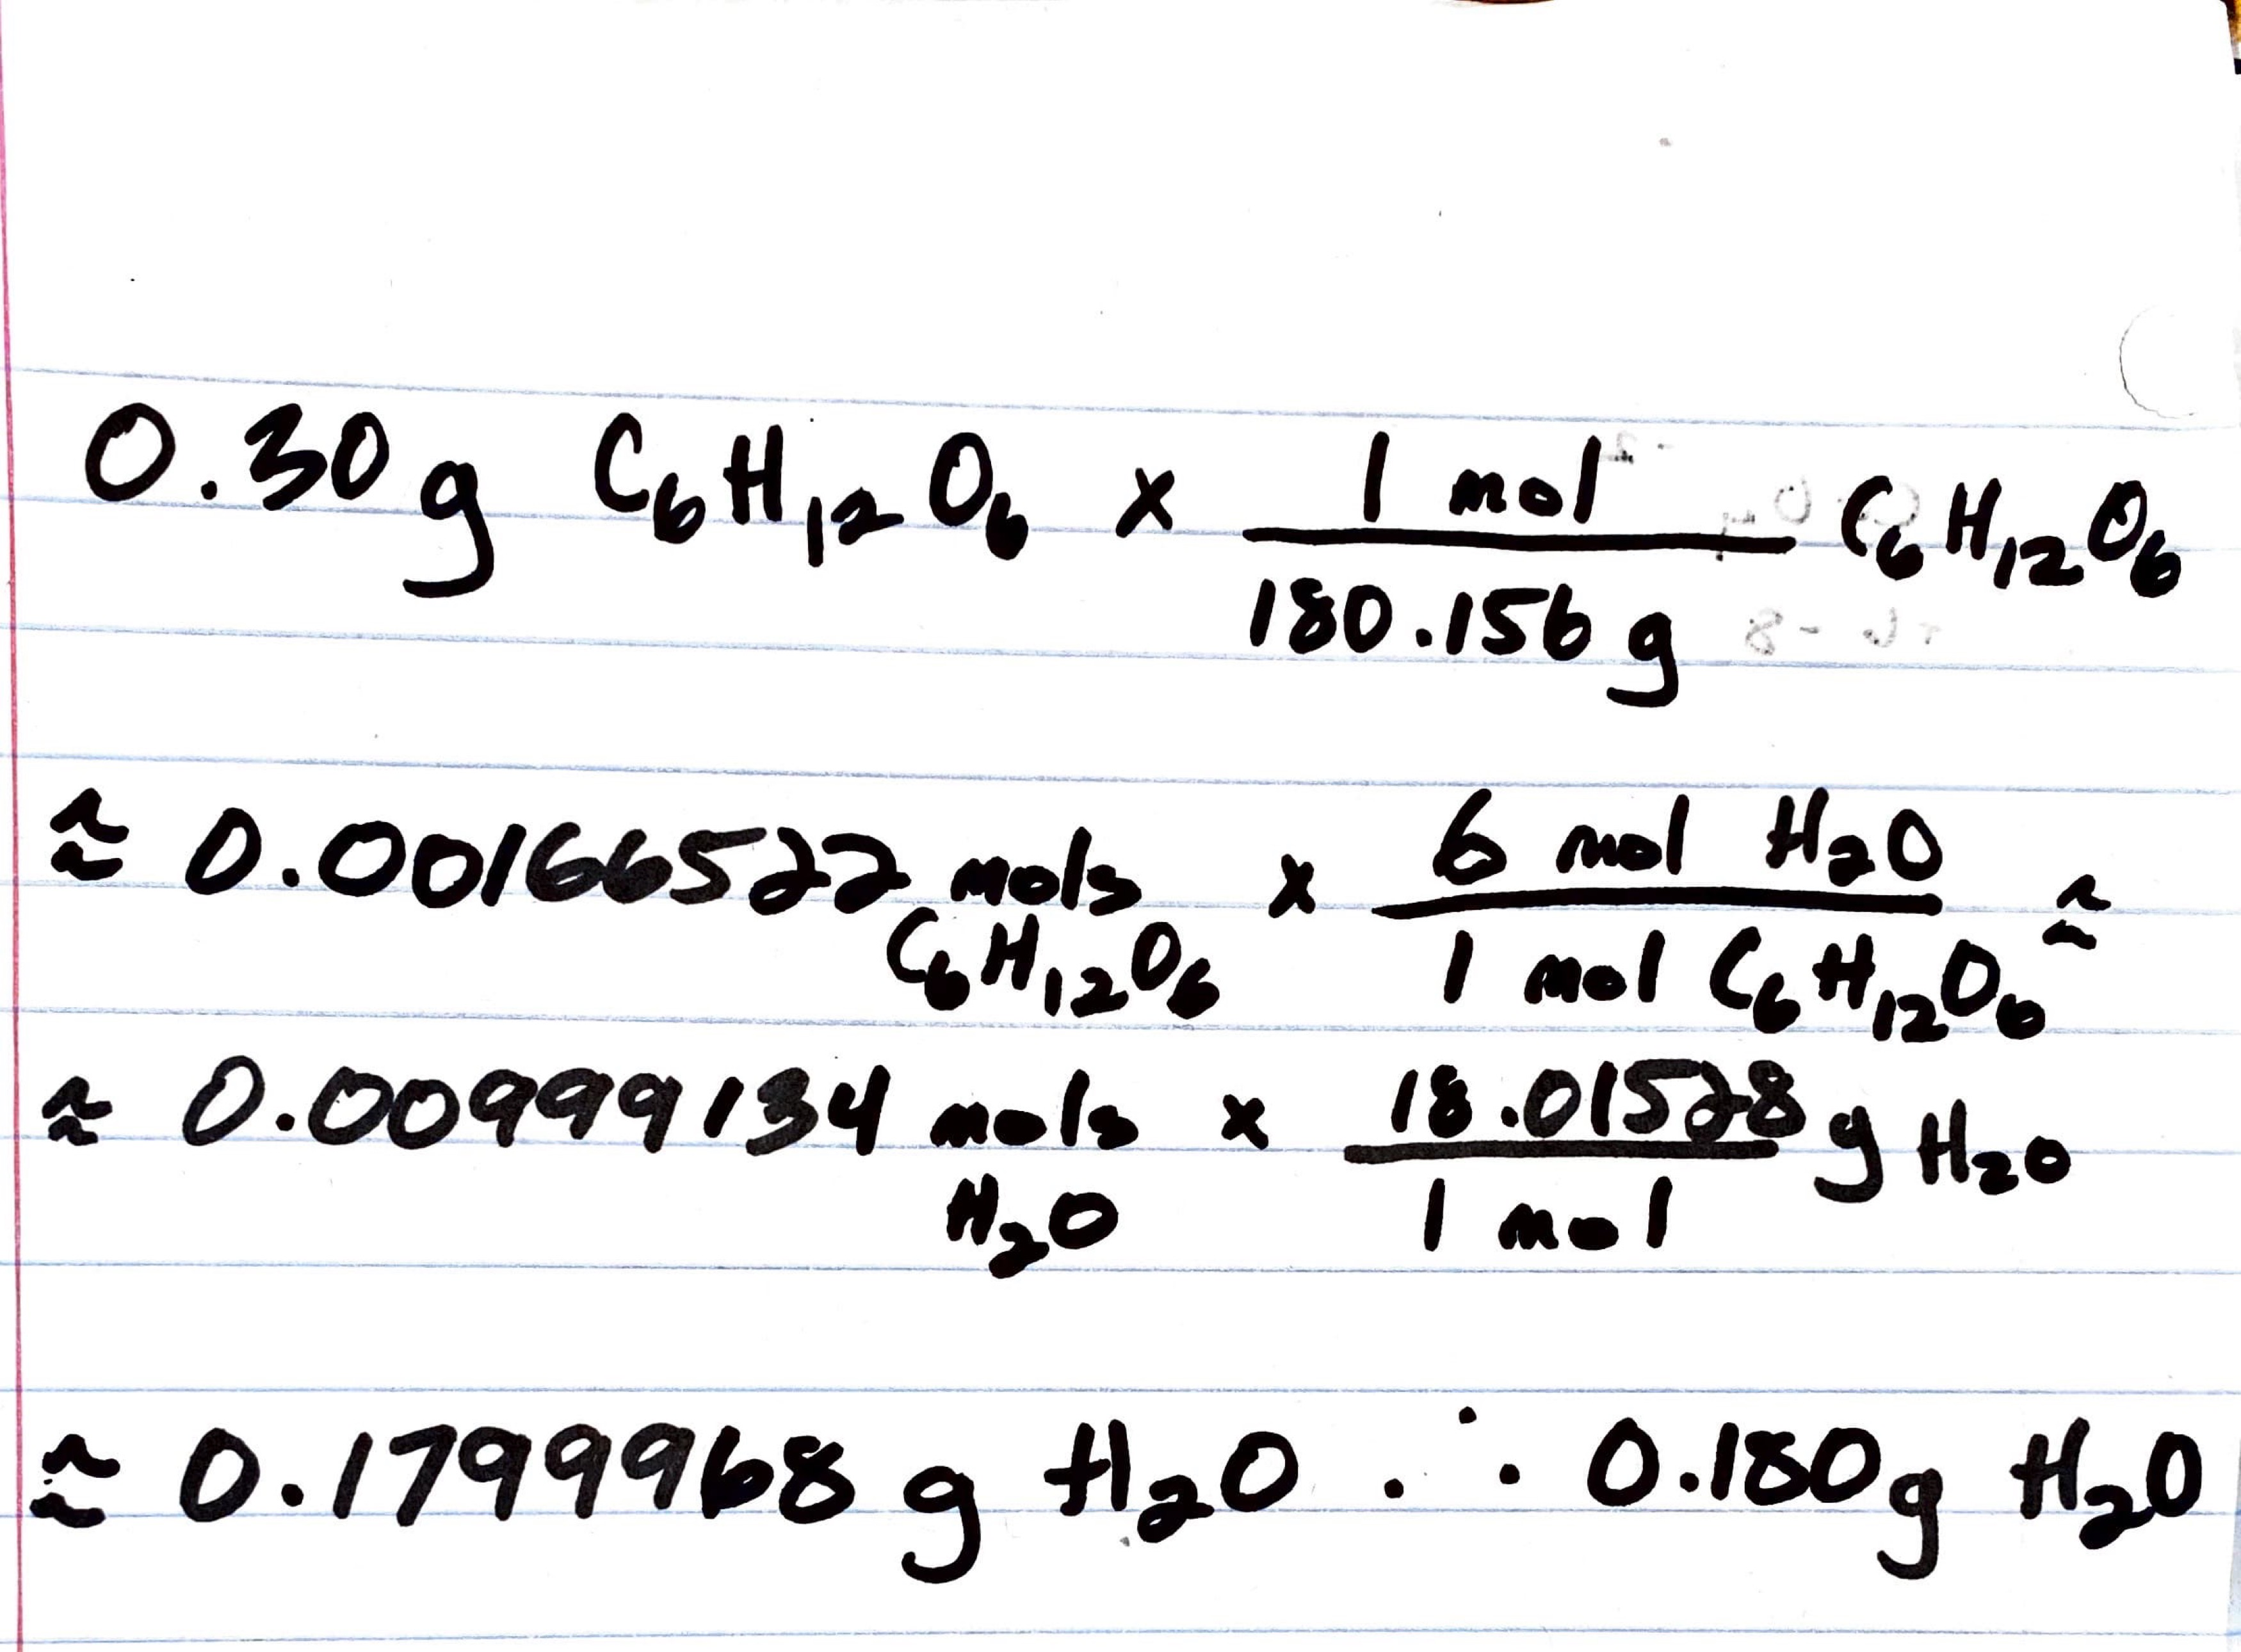 0.30 g C₆H₁₂O₆ x 1 mol / 180.156 g C₆H₁₂O₆
≈ 0.00166522 mols C₆H₁₂O₆ x 6 mol H₂O / 1 mol C₆H₁₂O₆ ≈
≈ 0.00999134 mols H₂O x 18.01528 g H₂O / 1 mol
≈ 0.1799968 g H₂O ∴ 0.180g H₂O